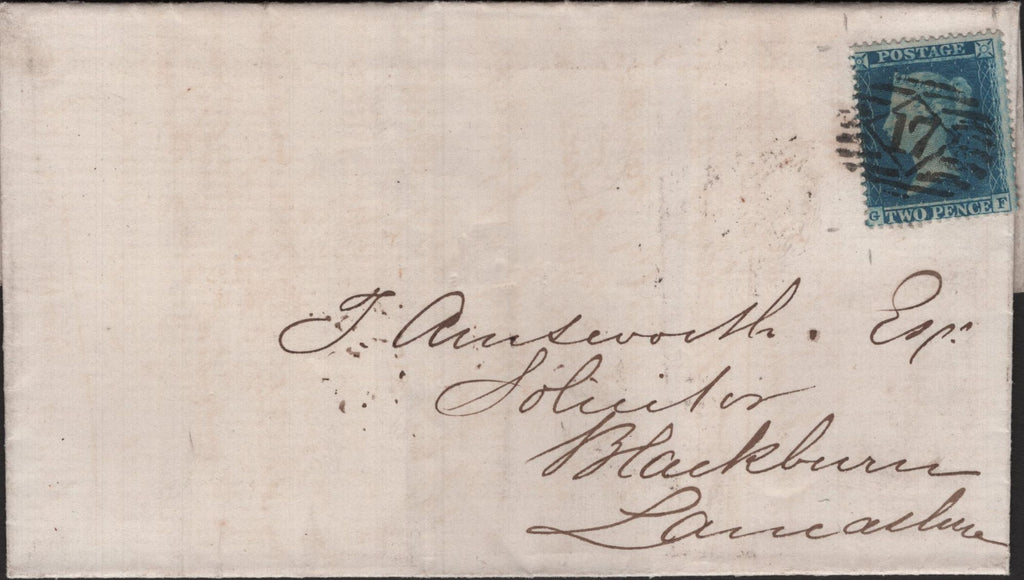 POSTAGE
17
G TWO PENCE F
T. Ainsworth. Esqr.
Solicitor
Blackburn
Lancashire